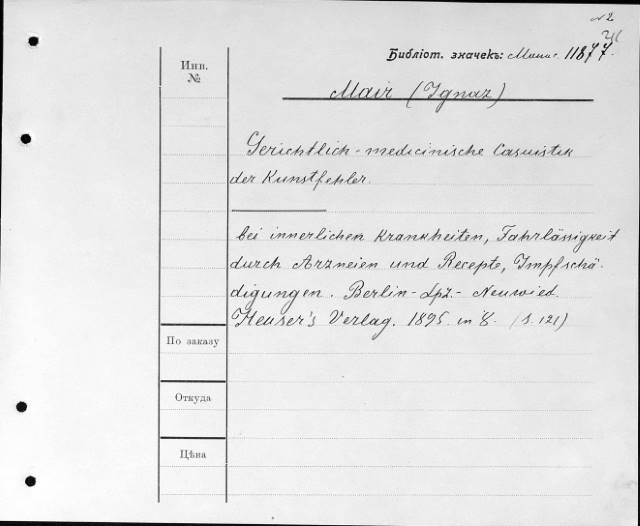 № 2
Инв.
№
Библіот. значекъ: 11877.
Mair (Ignaz)
Gerichtlich-medicinische Casuistik
der Kunstfehler.
bei innerlichen Krankheiten, Fahrlässigkeit
durch Arzneien und Recepte, Impfschä-
digungen. Berlin-Lpz.-Neuwied.
Heuser's Verlag. 1895. in 8. (S. 121)
По заказу
Откуда
Цѣна